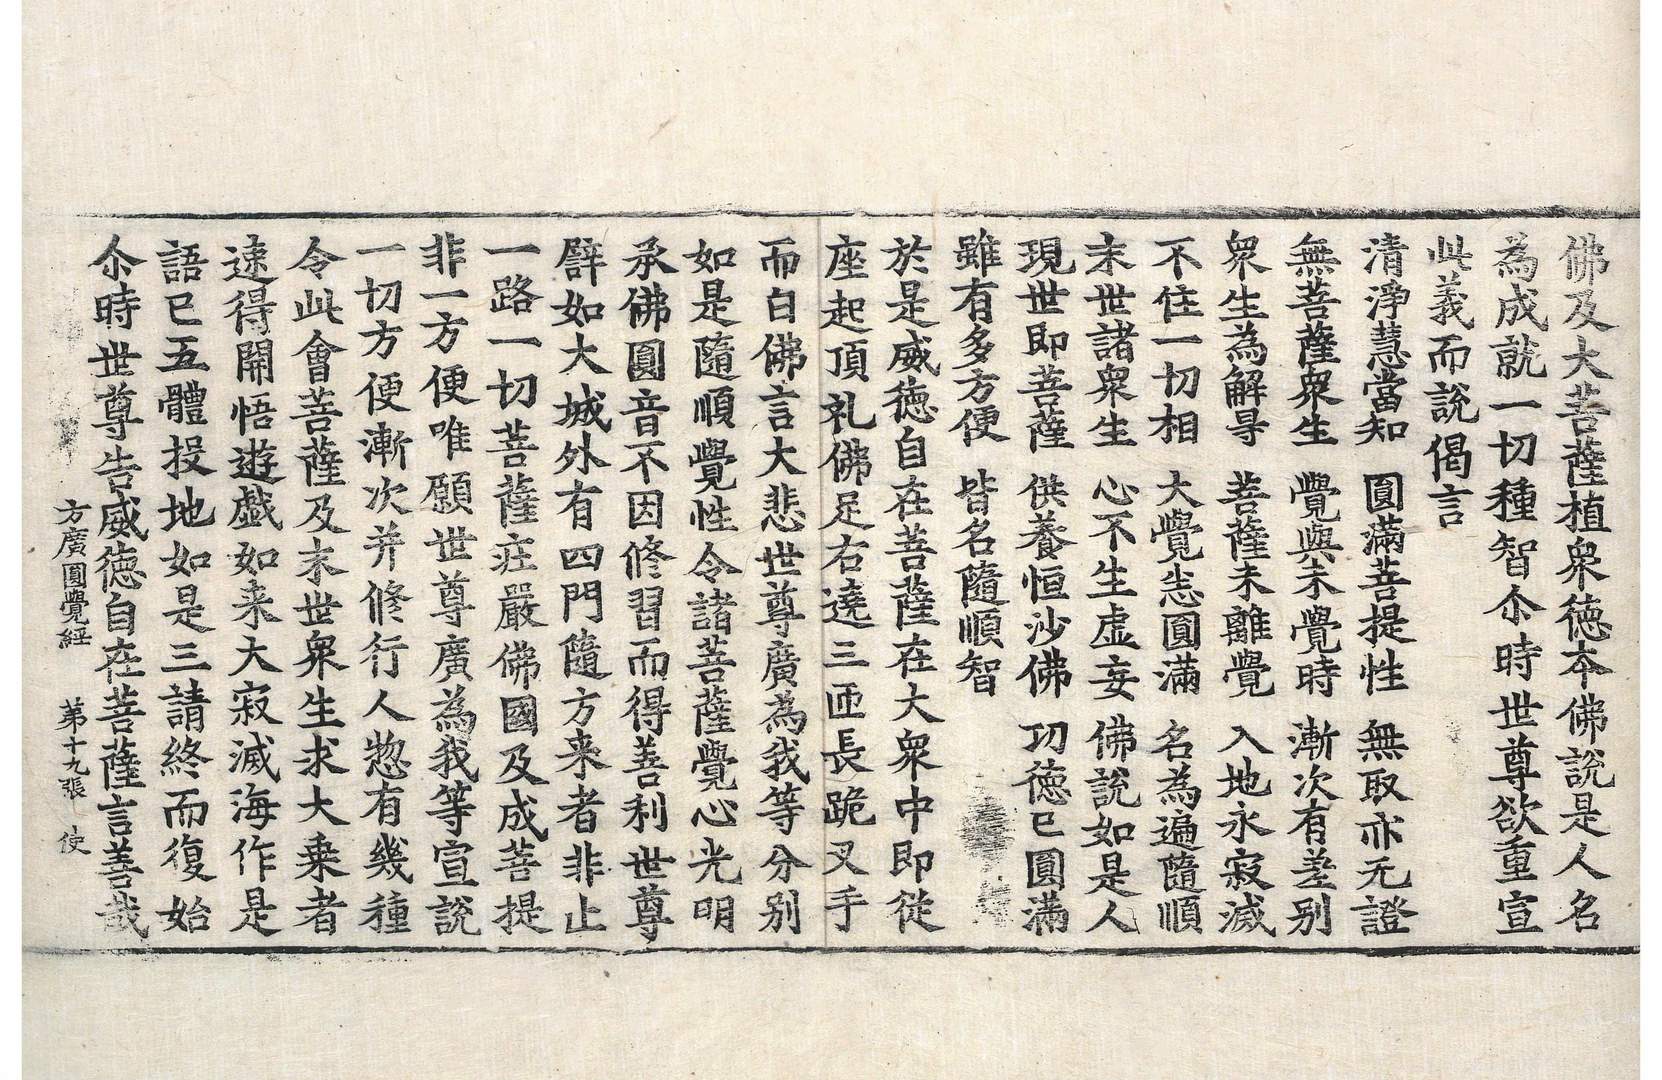 佛及大菩薩植衆德夲佛說是人名
為成就一切種智尒時世尊欲重宣
此義而說偈言
清淨慧當知　圓滿菩提性　無取亦无證
無菩薩衆生　覺與未覺時　漸次有差别
衆生為解㝵　菩薩未離覺　入地永寂滅
不住一切相　大覺悉圓滿　名為遍隨順
末世諸衆生　心不生虛妄　佛說如是人
現世即菩薩　供養恒沙佛　功德已圓滿
雖有多方便　皆名隨順智
於是威德自在菩薩在大衆中即從
座起頂礼佛足右遶三匝長跪叉手
而白佛言大悲世尊廣為我等分别
如是隨順覺性令諸菩薩覺心光明
承佛圓音不因修習而得善利世尊
譬如大城外有四門隨方来者非止
一路一切菩薩莊嚴佛國及成菩提
非一方便唯願世尊廣為我等宣說
一切方便漸次并修行人惣有幾種
令此會菩薩及末世衆生求大乗者
速得開悟遊戲如来大寂滅海作是
語已五體投地如是三請終而復始
尒時世尊告威德自在菩薩言善哉
方廣圓覺經　第十九張　使